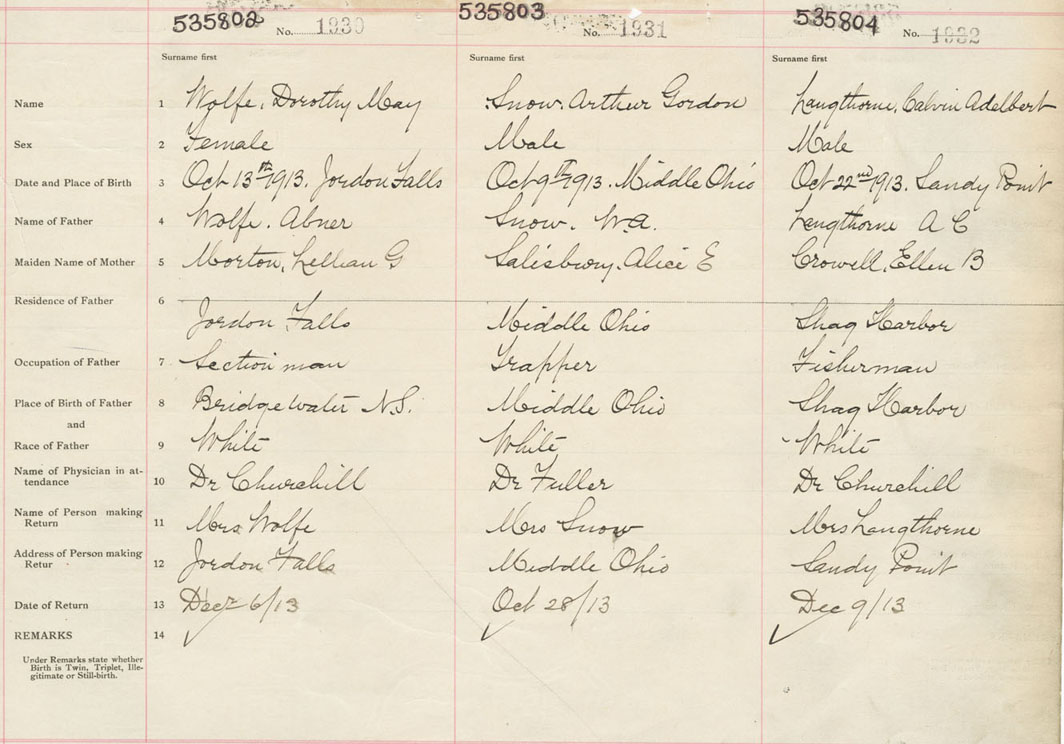 535802 No. 1930 535803 No. 1931 535804 No. 1932
Surname first Surname first Surname first
Name 1 Wolfe, Dorothy May Snow. Arthur Gordon Langthorne, Calvin Adelbert
Sex 2 Female Male Male
Date and Place of Birth 3 Oct 13th 1913. Jordon Falls Oct 9th 1913. Middle Ohio Oct 22nd 1913. Sandy Point
Name of Father 4 Wolfe. Abner Snow. W.a. Langthorne A C
Maiden Name of Mother 5 Morton, Lellian G Salisbury. Alice E Crowell, Ellen B
Residence of Father 6
Jordon Falls Middle Ohio Shag Harbor
Occupation of Father 7 Section man Trapper Fisherman
Place of Birth of Father 8 Bridgewater N.S. Middle Ohio Shag Harbor
and
Race of Father 9 White White White
Name of Physician in at-
tendance 10 Dr Churchill Dr Fuller Dr Churchill
Name of Person making
Return 11 Mrs Wolfe Mrs Snow Mrs Langthorne
Address of Person making
Retur 12 Jordon Falls Middle Ohio Sandy Point
Date of Return 13 Dec 6/13 Oct 28/13 Dec 9/13
REMARKS 14
Under Remarks state whether
Birth is Twin, Triplet, Ille-
gitimate or Still-birth.